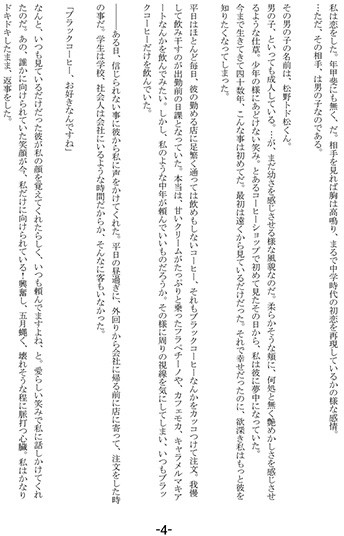 私は恋をした。年甲斐にも無く、だ。相手を見れば胸は高鳴り、まるで中学時代の初恋を再現しているかの様な感情。
…ただ、その相手、は男の子なのである。
その男の子の名前は、松野トド松くん。
男の子、といっても成人している。…が、まだ幼さを感じさせる様な風貌なのだ。柔らかそうな頬に、何処と無く艶めかしさを感じさせ
るような仕草。少年の様にあどけない笑み。とあるコーヒーショップで初めて見たその日から、私は彼に夢中になっていた。
今まで生きてきて四十数年、こんな事は初めてだ。最初は遠くから見ているだけだった。それで幸せだったのに、欲深き私はもっと彼を
知りたくなってしまった。
平日はほとんど毎日、彼の勤める店に足繁く通っては飲めもしないコーヒー、それもブラックコーヒーなんかをカッコつけて注文。我慢
して飲み干すのが出勤前の日課となっていた。本当は、甘いクリームがたっぷりと乗ったフラペチーノや、カフェモカ、キャラメルマキア
ートなんかを飲んでみたい。しかし、私のような中年が頼んでいいものだろうか。その様に周りの視線を気にしてしまい、いつもブラッ
クコーヒーだけを飲んでいた。
――ある日、信じられない事に彼から私に声をかけてくれた。平日の昼過ぎに、外回りから会社に帰る前に店に寄って、注文をした時
の事だ。学生は学校、社会人は会社にいるような時間だからか、そんなに客もいなかった。
『ブラックコーヒー、お好きなんですね』
なんと、いつも見ているだけだった彼が私の顔を覚えてくれたらしく、いつも頼んでますよね、と。愛らしい笑みで私に話しかけてくれ
たのだ。あの、誰かに向けられていた笑顔が今、私だけに向けられている！興奮し、五月蝿く、壊れそうな程に脈打つ心臓。私はかなり
ドキドキしたまま、返事をした。
-4-